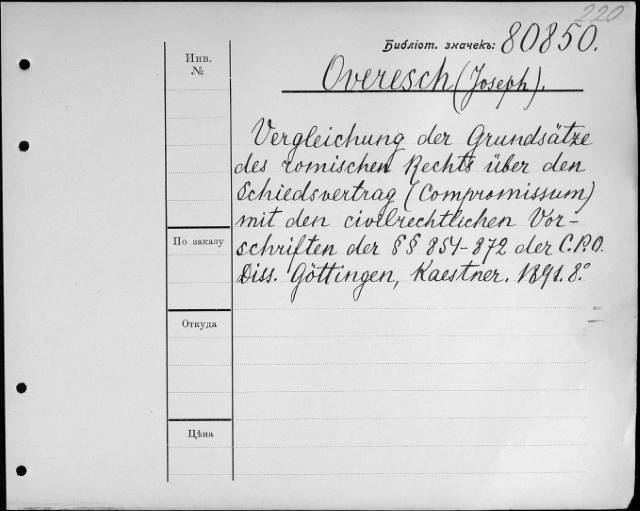 220
Библіот. значекъ: 80850.
Инв.
№
Overesch (Joseph).
Vergleichung der Grundsätze
des romischen Rechts über den
Schiedsvertrag (Compromissum)
mit den civilrechtlichen Vor-
schriften der §§ 851-872 der C.P.O.
Diss. Göttingen, Kaestner. 1891. 8.°
По заказу
Откуда
Цѣна